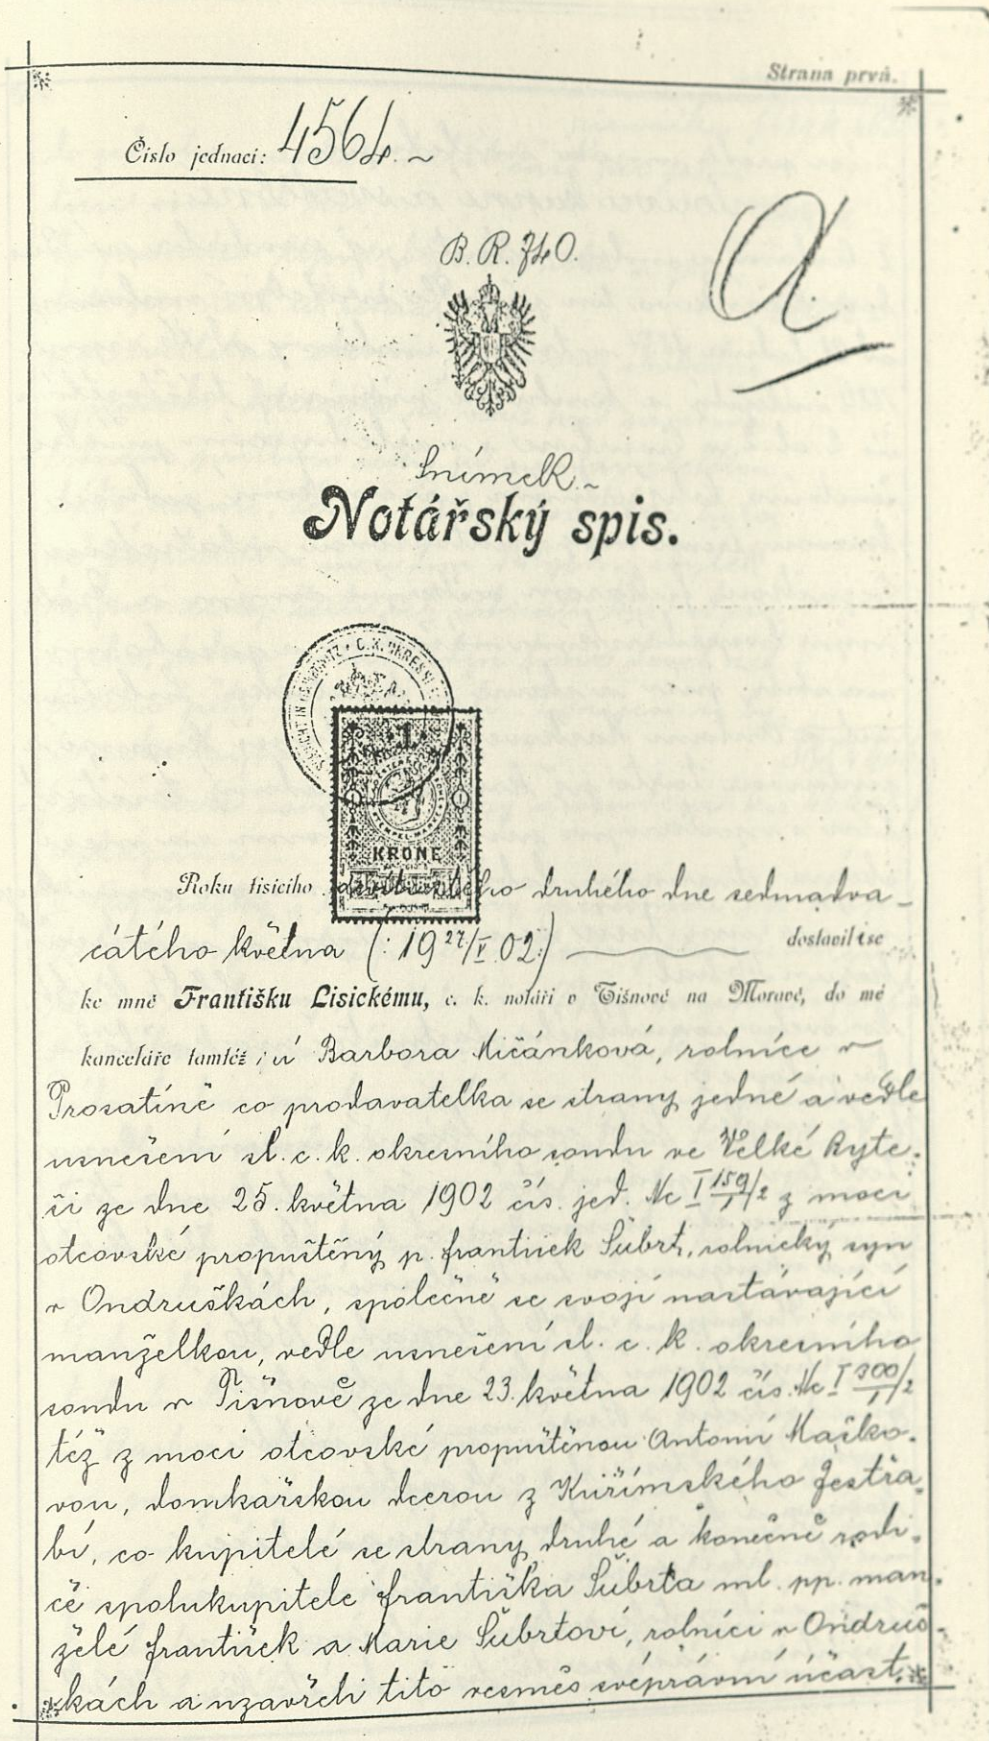 Strana prvá.
Číslo jednací: 4564. ~
B. R. 740.
a.
Snímek. ~
Notářský spis.
C. K. OKRESNÍ
1
KRONE
Roku tisícího devítistého druhého dne sedmadva-
cátého května (: 19 27/V. 02 :) dostavil i se
ke mně Františku Lisickému, c. k. notáři v Tišnově na Moravě, do mé
kanceláře tamtéž : Barbora Mičánková, rolnice v
Prosatíně co prodavatelka se strany jedné a vedle
usnešení sl. c. k. okresního soudu ve Velké Byte-
ši ze dne 25. května 1902 čís. jed. Nc I 159/2 z moci
otcovské propuštěný p. František Šubrt, rolnický syn
v Ondruškách, společně se svojí nastávající
manželkou, vedle usnešení sl. c. k. okresního
soudu v Tišnově ze dne 23. května 1902 čís. Nc I 300/2
též z moci otcovské propuštěnou Antonií Maško-
vou, domkářskou dcerou z Kuřímského Jestřa-
bí, co kupitelé se strany druhé a konečně rodi-
če spolukupitele Františka Šubrta ml. pp. man-
želé František a Marie Šubrtovi, rolníci v Ondruš-
kách a uzavřeli tito vesměs svéprávní účast-